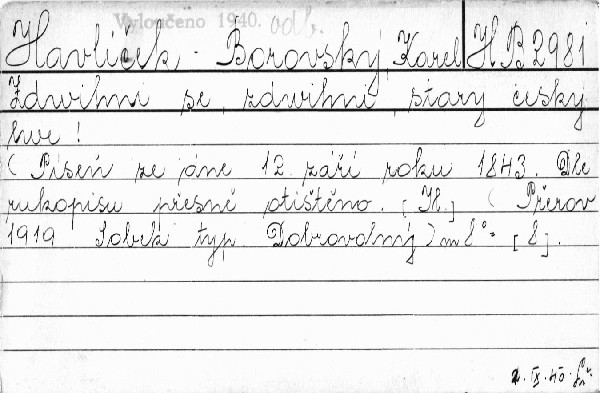 Vyloučeno 1940. odb.
Havlíček - Borovský, Karel HB 2981
Zdwihni se, zdwihni, starý český
lwe!
(Píseň ze dne 12. září roku 1843. Dle
rukopisu přesně otištěno. [Il.] (Přerov
1919 Sobek typ. Dobrovolný) m 8°= [8].
2. IX. 40